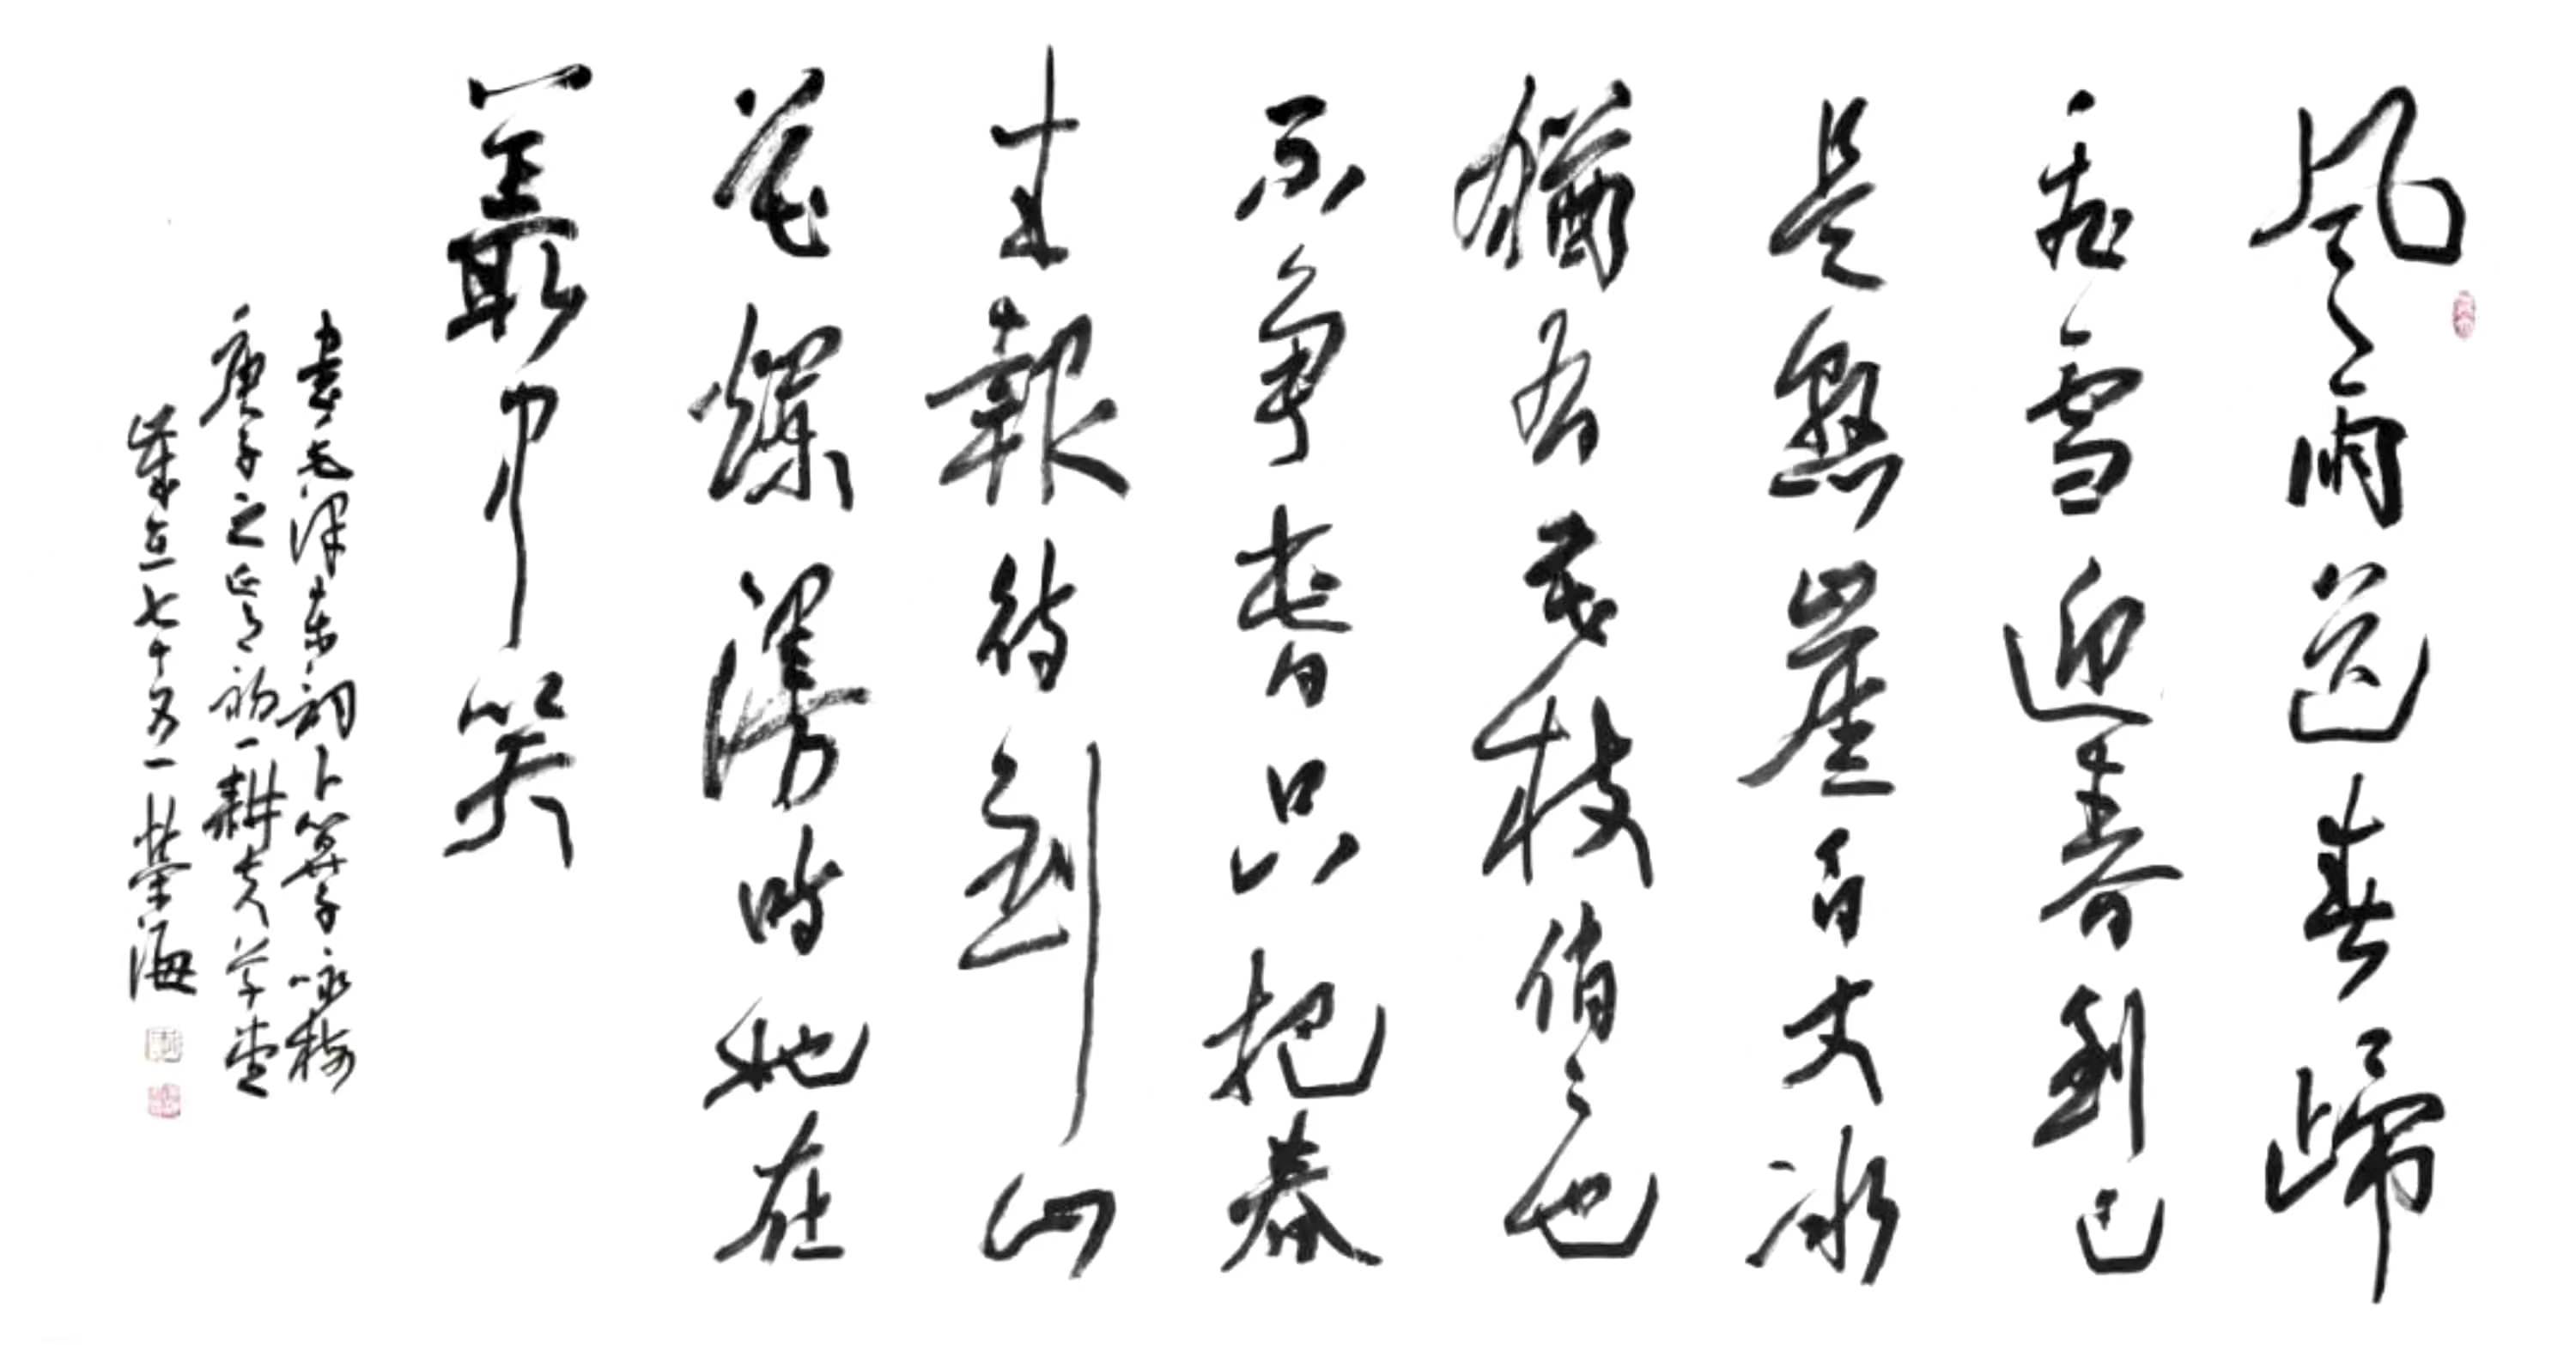 風雨送春歸
飛雪迎春到已
是懸崖百丈冰
猶有花枝俏俏也
不爭春只把春
來報待到山
花爛漫時她在
叢中笑
書毛澤東詞卜算子咏梅
庚子之 初 耕夫草堂
歲在七十又一 荣海